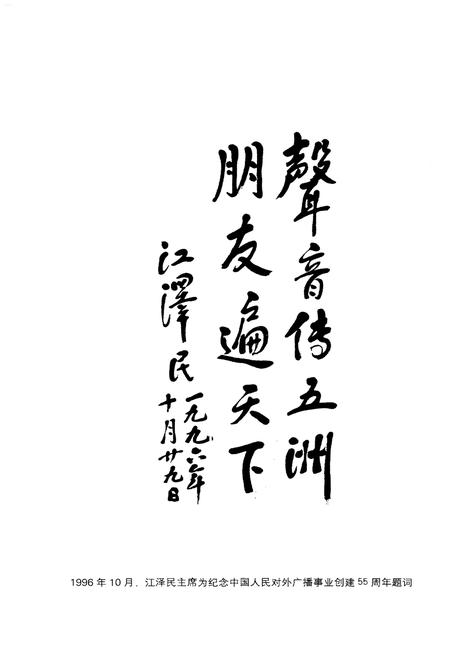 聲音传五洲
朋友遍天下
江澤民
一九九六年
十月廿九日
1996 年 10 月，江泽民主席为纪念中国人民对外广播事业创建 55 周年题词